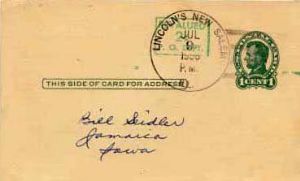 LINCOLN'S NEW SALEM
JUL
9
P.M.
ILL.
THIS SIDE OF CARD FOR ADDRESS
1 CENT 1
Bill Seidler
Jamaica
Iowa